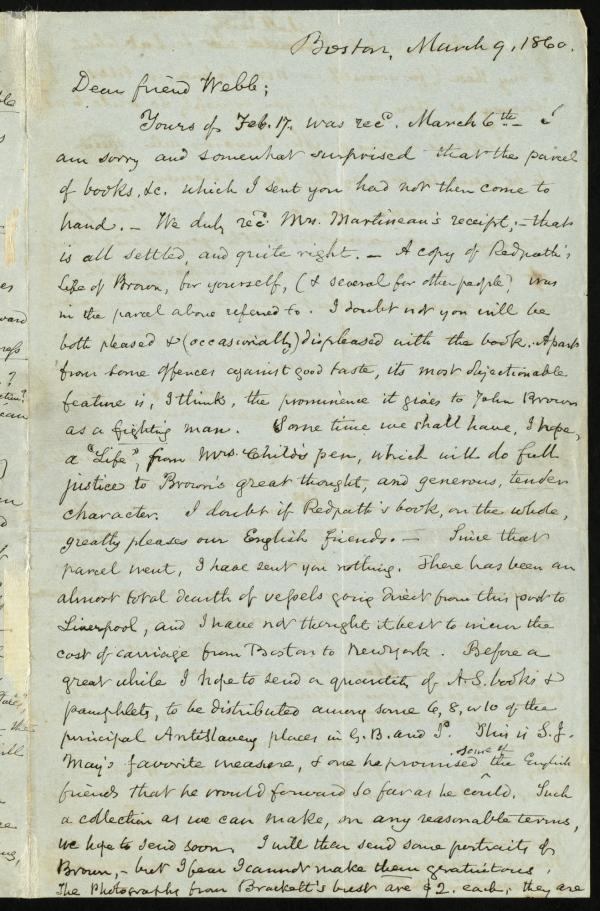 Boston, March 9, 1860.
Dear friend Webb;
Yours of Feb. 17. was recd. March 6th - I
am sorry and somewhat surprised that the parcel
of books, &c. which I sent you had not then come to
hand. - We duly recd. Mrs. Martineau's receipt; - that
is all settled, and quite right. - A copy of Redpath's
Life of Brown, for yourself, (& several for other people) was
in the parcel above referred to. I doubt not you will be
both pleased & (occasionally) displeased with the book. Apart
from some offences against good taste, its most objectionable
feature is, I think, the prominence it gives to John Brown
as a fighting man. Some time we shall have, I hope,
a "Life", from Mrs. Child's pen, which will do full
justice to Brown's great thought, and generous, tender
character. I doubt if Redpath's book, on the whole,
greatly pleases our English friends. - Since that
parcel went, I have sent you nothing. There has been an
almost total dearth of vessels going direct from this port to
Liverpool, and I have not thought it best to incur the
cost of carriage from Boston to New York. Before a
great while I hope to send a quantity of A.S. books &
pamphlets, to be distributed among some 6, 8, or 10 of the
principal Antislavery places in G.B. and Id. This is S.J.
May's favorite measure, & one he promised some of the English
friends that he would forward so far as he could. Such
a collection as we can make, on any reasonable terms,
we hope to send soon. I will then send some portraits of
Brown, - but I fear I cannot make them gratuitous.
The Photographs from Brackett's bust are $2. each; they are